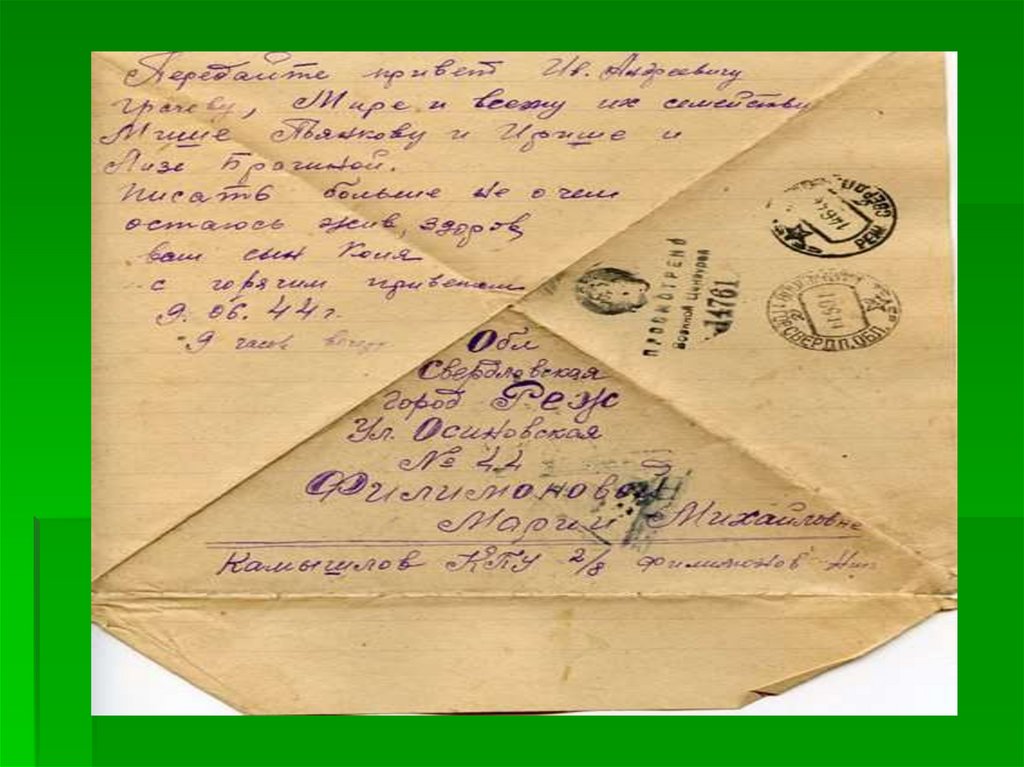 Передайте привет Ив. Андреевичу
Грачеву, Мире и всему их семейству
Мише Пьянкову и Ирише и
Лизе Брагиной.
Писать больше не о чем
остаюсь жив, здоров,
ваш сын Коля
с горячим приветом
9.06.44 г.
9 часов
ПРОСМОТРЕНО
Военной Цензурой
14761
РЕЖ СВЕРДЛ.
СВЕРДЛ.ОБЛ.
Обл
Свердловская
город Реж
Ул. Осиновская
№ 44
Филимоновой
Марии Михайловне
Камышлов КПУ 2/8 Филимонов